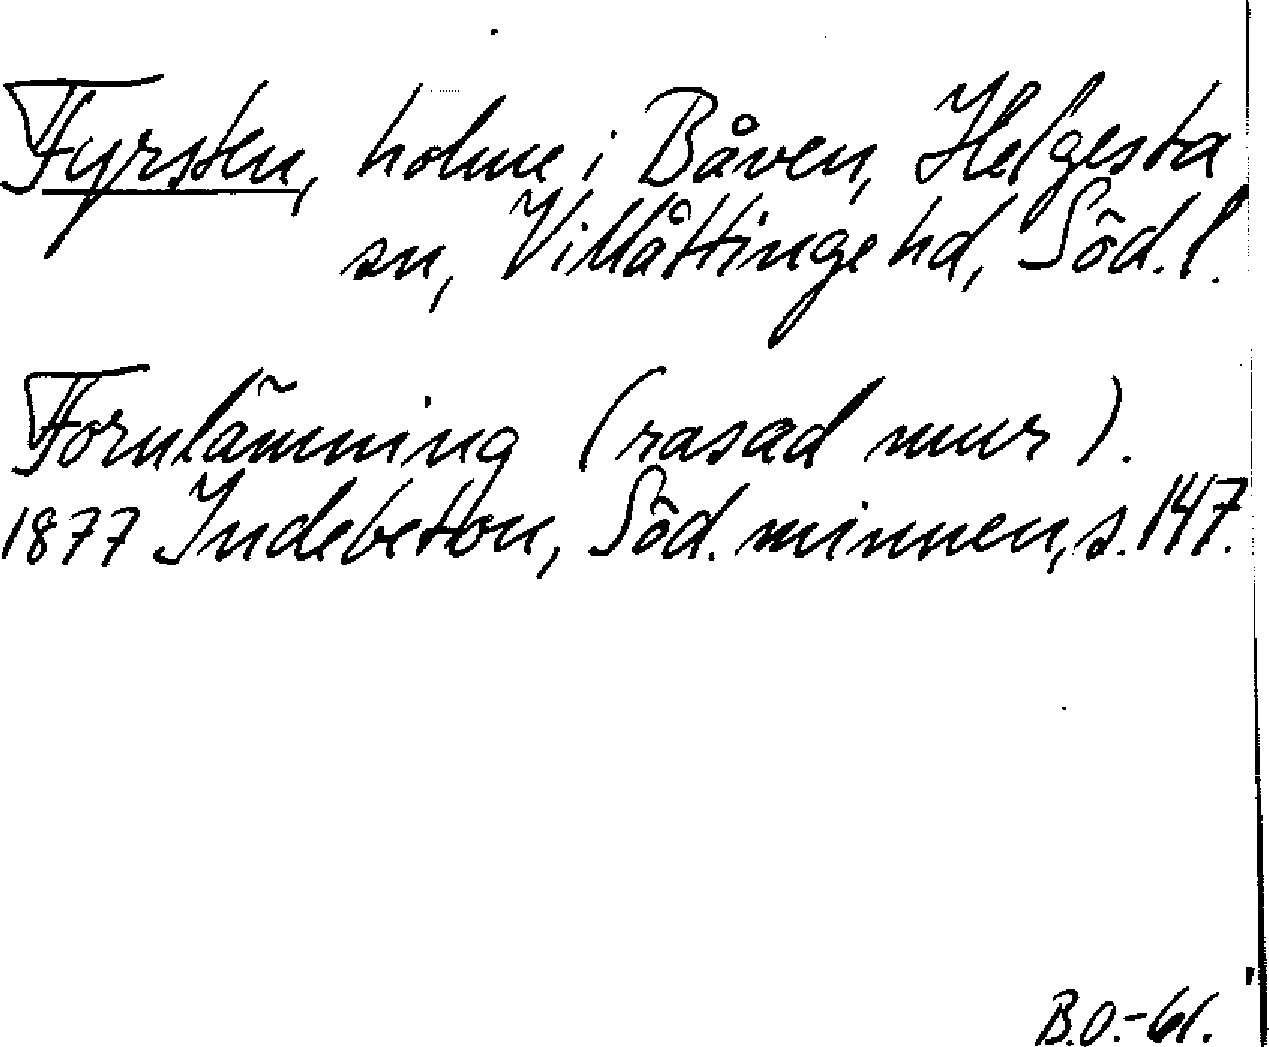 Fyrsten, holme i Båven, Helgesta
sn, Villåttinge hd, Söd. l.
Fornlämning (rasad mur).
1877 Indebetou, Söd. minnen, s. 147.
B.O.-61.